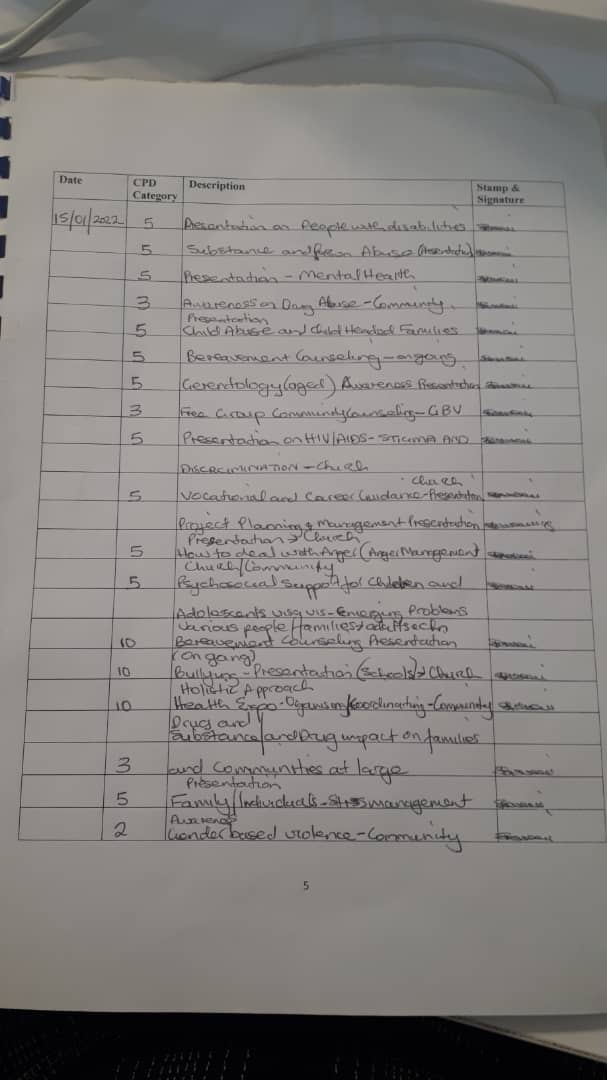 Date CPD Category Description Stamp & Signature
15/01/2022 5 Presentation on People with disabilities
5 Substance and Abuse (Presentation)
5 Presentation - Mental Health
3 Awareness on Drug Abuse - Community
Presentation
5 Child Abuse and Child Headed Families
5 Bereavement Counseling - ongoing
5 Gerentology (aged) Awareness Presentation
3 Free Group Community Counseling - GBV
5 Presentation on HIV/AIDS - STIGMA AND
DISCRIMINATION - Church
Church
5 Vocational and Career Guidance - Presentation
Project Planning & Management Presentation
Presentation → Church
5 How to deal with Anger (Anger Management)
Church/Community
5 Psychosocial Support for Children and
Adolescents visa vis - Emerging Problems
Various people families
10 Bereavement Counseling Presentation
(on gang)
10 Bullying - Presentation (Schools) → Church
Holistic Approach
10 Health Expo - Organising/Coordinating - Community
Drugs and
Substance and Drug impact on families
3 and Communities at large
Presentation
5 Family/Individuals - Stress management
Awareness
2 Gender based violence - Community
5